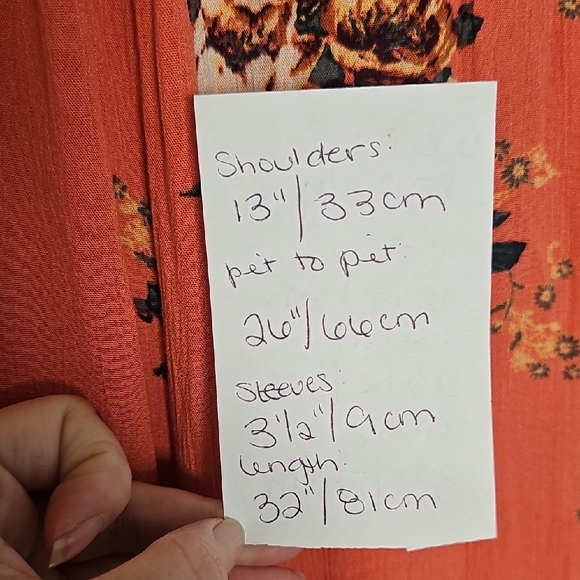 Shoulders:
13"/33cm
pit to pit:
26"/66cm
Sleeves:
3 1/2"/9cm
length:
32"/81cm